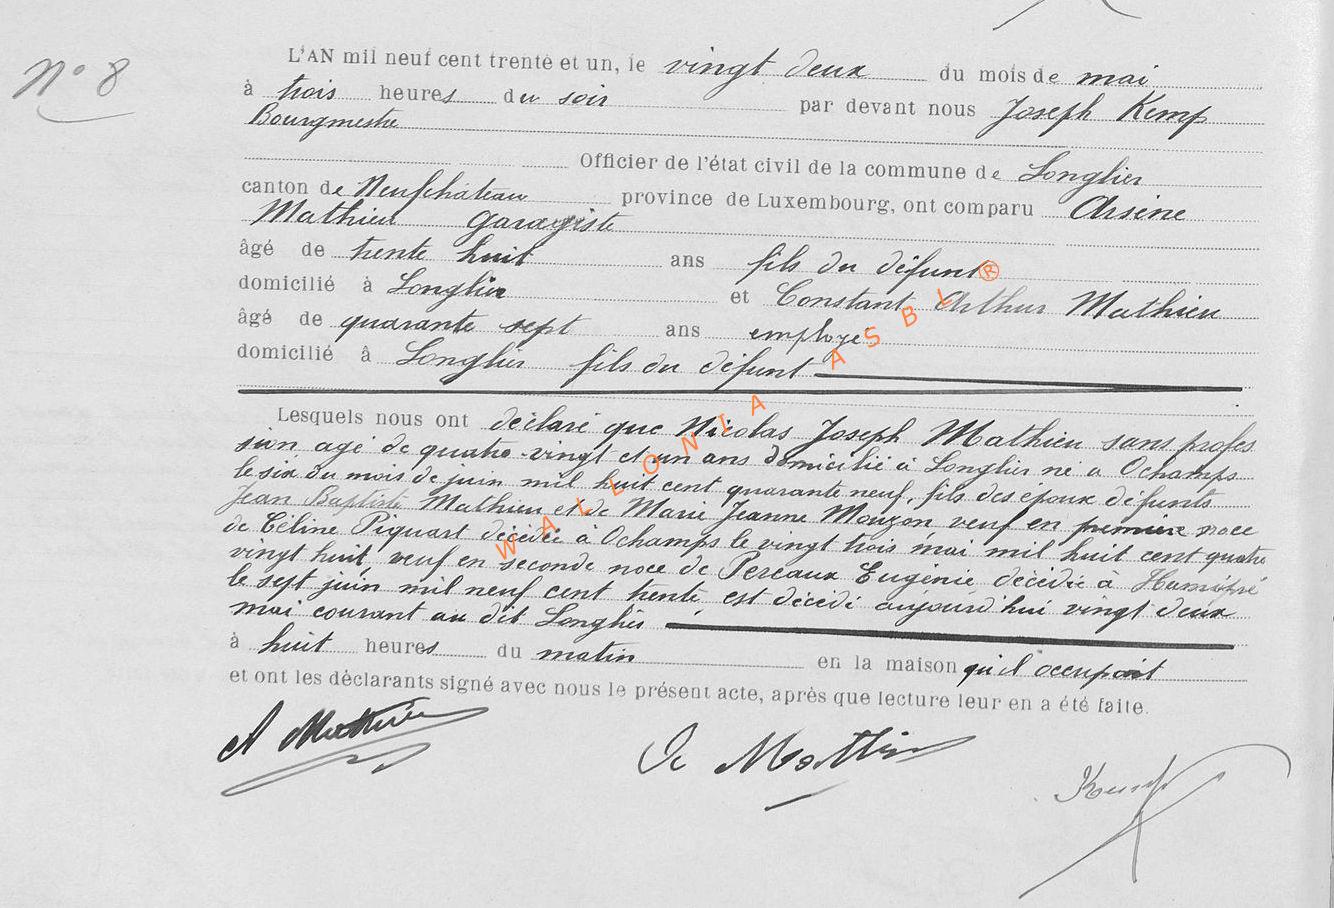 N° 8
L'AN mil neuf cent trente et un, le vingt deux du mois de mai
à trois heures du soir par devant nous Joseph Kemp
Bourgmestre
Officier de l'état civil de la commune de Longlier
canton de Neufchâteau province de Luxembourg, ont comparu Arsène
Mathieu garagiste
âgé de trente huit ans fils du défunt
domicilié à Longlier et Constant Arthur Mathieu
âgé de quarante sept ans employé
domicilié à Longlier fils du défunt
Lesquels nous ont déclaré que Nicolas Joseph Mathieu sans profes
sion agé de quatre-vingt et un ans domicilié à Longlier né a Ochamps
le six du mois de juin mil huit cent quarante neuf, fils des époux défunts
Jean Baptiste Mathieu et de Marie Jeanne Mouzon veuf en première noce
de Céline Piquart décédée à Ochamps le vingt trois mai mil huit cent quatre
vingt huit, veuf en seconde noce de Pereaux Eugénie décédée a Hamipré
le sept juin mil neuf cent trente, est décédé aujourd'hui vingt deux
mai courant au dit Longlier
à huit heures du matin en la maison qu'il occupait
et ont les déclarants signé avec nous le présent acte, après que lecture leur en a été faite.
A Mathieu
C Mathieu
Kemp
WALLONIA ASBL ®